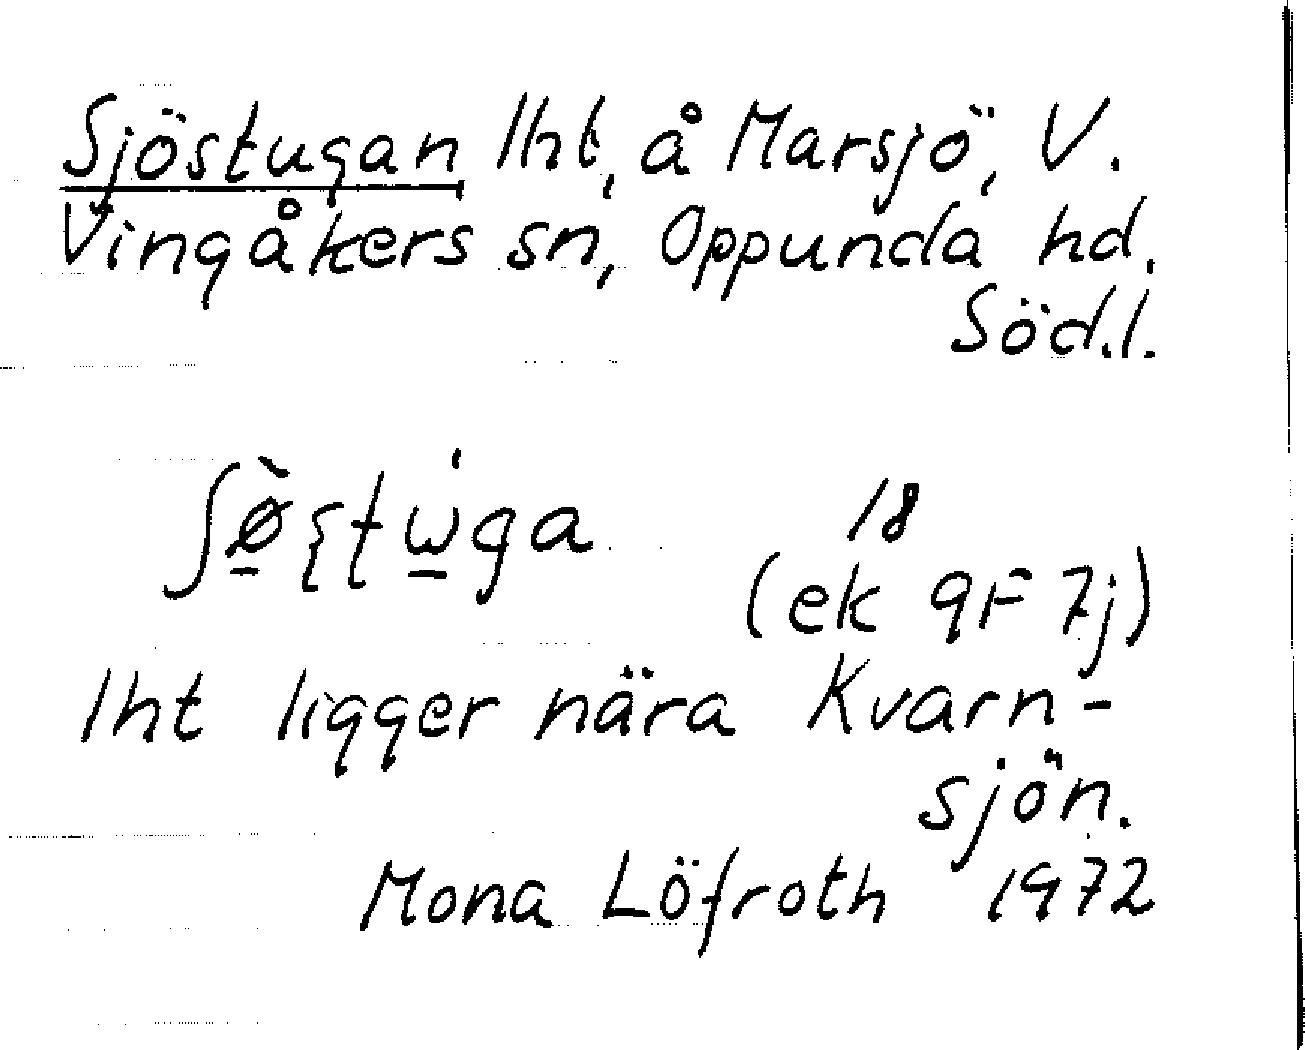 Sjöstugan lht, å Marsjö, V.
Vingåkers sn, Oppunda hd.
Söd.l.
18
(ek 9F 7j)
lht ligger nära Kvarn-
sjön.
Mona Löfroth 1972